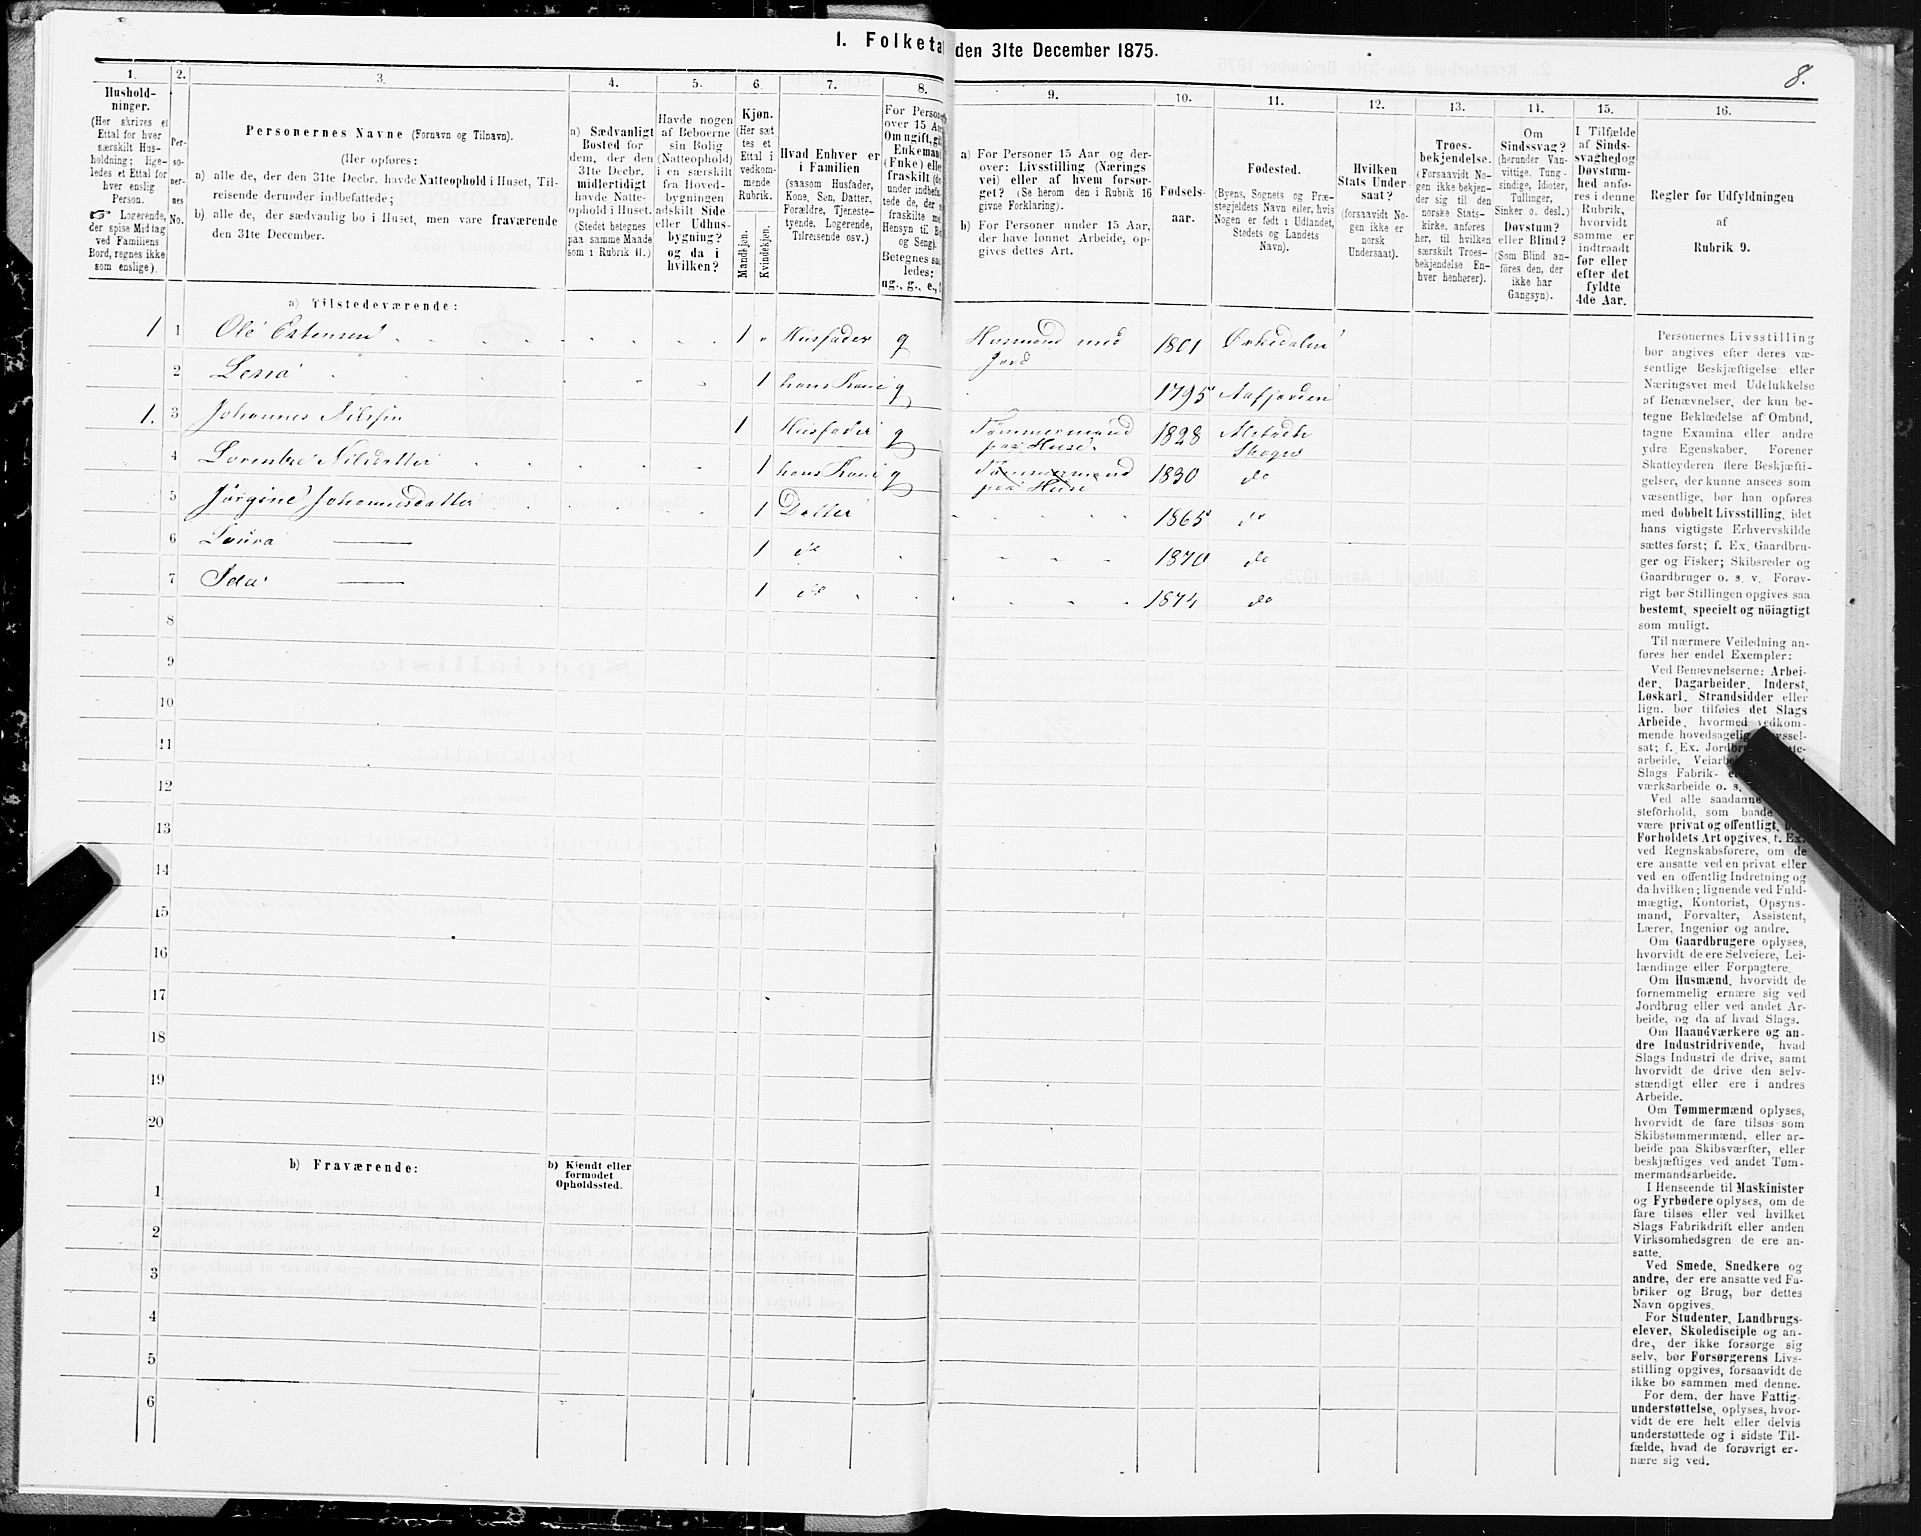 1. Folketal den 31te December 1875.
8.
1.
Hushold-
ninger.
(Her skrives et
Ettal for hver
særskilt Hus-
holdning; lige-
ledes et Ettal for
hver enslig
Person.
☞ Logerende,
der spise Middag
ved Familiens
Bord, regnes ikke
som enslige).
2.
Per-
so-
ner-
nes
No.
3.
Personernes Navne (Fornavn og Tilnavn).
(Her opføres:
a) alle de, der den 31te Decbr. havde Natteophold i Huset, Til-
reisende derunder indbefattede;
b) alle de, der sædvanlig bo i Huset, men vare fraværende
den 31te December.
4.
a) Sædvanligt
Bosted for
dem, der den
31te Decbr.
midlertidigt
havde Natte-
ophold i Huset.
(Stedet betegnes
paa samme Maade
som i Rubrik 11.)
5.
Havde nogen
af Beboerne
sin Bolig
(Natteophold)
i en særskilt
fra Hoved-
bygningen
adskilt Side-
eller Udhus-
bygning?
og da i
hvilken?
6.
Kjøn.
(Her sæt-
tes et
Ettal i
vedkom-
mende
Rubrik.
Mandkjøn.
Kvindekjøn.
7.
Hvad Enhver er
i Familien
(saasom Husfader,
Kone, Søn, Datter,
Forældre, Tjeneste-
tyende, Logerende,
Tilreisende osv.)
8.
For Personer
over 15 Aar:
Om ugift, gift,
Enkemand
(Enke) eller
fraskilt
under indbefa
tede de, der
fraskilte m
Hensyn til B
og Seng).
Betegnes saa-
ledes:
ug., g., e., f.
9.
a) For Personer 15 Aar og der-
over: Livsstilling (Nærings
vei) eller af hvem forsør-
get? (Se herom den i Rubrik 16
givne Forklaring).
b) For Personer under 15 Aar,
der have lønnet Arbeide, op-
gives dettes Art.
10.
Fødsels-
aar.
11.
Fødested.
(Byens, Sognets og Præ-
stegjeldets Navn eller, hvis
Nogen er født i Udlandet,
Stedets og Landets
Navn).
12.
Hvilken
Stats Under-
saat?
(forsaavidt No-
gen ikke er
norsk
Undersaat).
13.
Troes-
bekjendelse.
(Forsaavidt No-
gen ikke bekjen-
der sig til den
norske Stats-
kirke, anføres
her, til hvilken
særskilt Troes-
bekjendelse En-
hver henhører).
14.
Om
Sindssvag?
(herunder Van-
vittige, Tung-
sindige, Idioter,
Tullinger,
Sinker o. desl.)
Døvstum?
eller Blind?
(Som Blind an-
föres den, der
ikke har
Gangsyn).
15.
I Tilfælde
af Sinds-
svaghed og
Døvstum-
hed anfø-
res i denne
Rubrik,
hvorvidt
samme er
indtraadt
før eller
efter det
fyldte
4de Aar.
16.
Regler for Udfyldningen
af
Rubrik 9.
a) Tilstedeværende:
1 1 Ole Estensen 1 Husfader g Husmand med Jord 1801 Ørkedalen
2 Lena 1 hans Kone g 1795 Aafjorden
1. 3 Johannes Nilsen 1 Husfader g Tømmermand paa Huse 1828 Alstadh Skogn
4 Lorentse Nilsdatter 1 hans Kone g Tømmermand paa Huse 1830 do
5 Jørgine Johannesdatter 1 Datter 1865 do
6 Laura — 1 do 1870 do
7 Ida — 1 do 1874 do
8
9
10
11
12
13
14
15
16
17
18
19
20
b) Fraværende:
b) Kjendt eller
formodet
Opholdssted.
1
2
3
4
5
6
Personernes Livsstilling
bør angives efter deres væ-
sentlige Beskjæftigelse eller
Næringsvei med Udelukkelse
af Benævnelser, der kun be-
tegne Beklædelse af Ombud,
tagne Examina eller andre
ydre Egenskaber. Forener
Skatteyderen flere Beskjæfti-
gelser, der kunne ansees som
væsentlige, bør han opføres
med dobbelt Livsstilling, idet
hans vigtigste Erhvervskilde
sættes først; f. Ex. Gaardbru-
ger og Fisker; Skibsreder og
Gaardbruger o. s. v. Forøv-
rigt bør Stillingen opgives saa
bestemt, specielt og nöiagtigt
som muligt.
Til nærmere Veiledning an-
føres her endel Exempler:
Ved Benævnelserne: Arbei-
der, Dagarbeider, Inderst,
Løskarl, Strandsidder eller
lign. bør tilføies det Slags
Arbeide, hvormed vedkom-
mende hovedsagelig
sat; f. Ex.
arbeide,
Slags Fabrik-
værksarbeide o. s.
Ved alle saadanne
steforhold, som baade
være privat og offentligt,
Forholdets Art opgives, t. Ex.
ved Regnskabsførere, om de
ere ansatte ved en privat eller
ved en offentlig Indretning og
da hvilken; lignende ved Fuld-
mægtig, Kontorist, Opsyns-
mand, Forvalter, Assistent,
Lærer, Ingeniør og andre.
Om Gaardbrugere oplyses,
hvorvidt de ere Selveiere, Lei-
lændinge eller Forpagtere.
Om Husmænd, hvorvidt de
fornemmelig ernære sig ved
Jordbrug eller ved andet Ar-
beide, og da af hvad Slags.
Om Haandværkere og an-
dre Industridrivende, hvad
Slags Industri de drive, samt
hvorvidt de drive den selv-
stændigt eller ere i andres
Arbeide.
Om Tømmermænd oplyses,
hvorvidt de fare tilsøs som
Skibstømmermænd, eller ar-
beide paa Skibsværfter, eller
beskjæftiges ved andet Tøm-
mermandsarbeide.
I Henseende til Maskinister
og Fyrbødere oplyses, om de
fare tilsøs eller ved hvilket
Slags Fabrikdrift eller anden
Virksomhedsgren de ere an-
satte.
Ved Smede, Snedkere og
andre, der ere ansatte ved Fa-
briker og Brug, bør dettes
Navn opgives.
For Studenter, Landbrugs-
elever, Skoledisciple og an-
dre, der ikke forsørge sig
selv, bør Forsørgerens Livs-
stilling opgives, forsaavidt de
ikke bo sammen med denne.
For dem, der have Fattig-
understøttelse, oplyses, hvor-
vidt de ere helt eller delvis
understøttede og i sidste Til-
fælde, hvad de forøvrigt er-
nære sig ved.